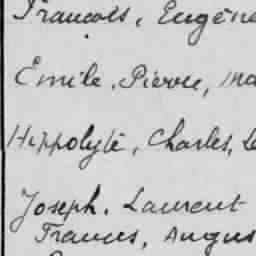 François, Eugène
Emile, Pierre, Ma
Hippolyte, Charles, Le
Joseph, Laurent
Francis, Augus